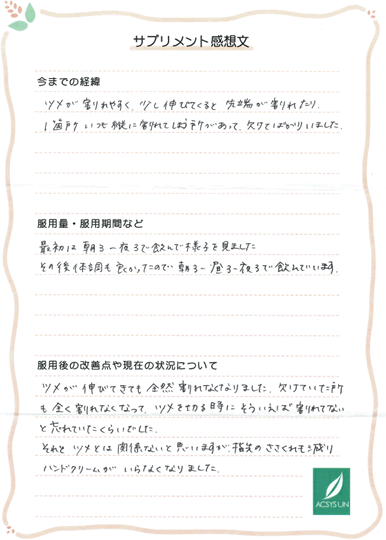 サプリメント感想文
今までの経緯
ツメが割れやすく、少し伸びてくると先端が割れたり、
1箇所いつも縦に割れてしまう所があって、欠けてばかりいました。
服用量・服用期間など
最初は朝3ー夜3で飲んで様子を見ました
その後体調も良かったので朝3ー昼3ー夜3で飲んでいます。
服用後の改善点や現在の状況について
ツメが伸びてきても全然割れなくなりました。欠けていた所
も全く割れなくなって、ツメを切る時にそういえば割れてない
と忘れていたくらいでした。
それとツメとは関係ないと思いますが、指先のささくれも減り
ハンドクリームがいらなくなりました。
ACSYS UN